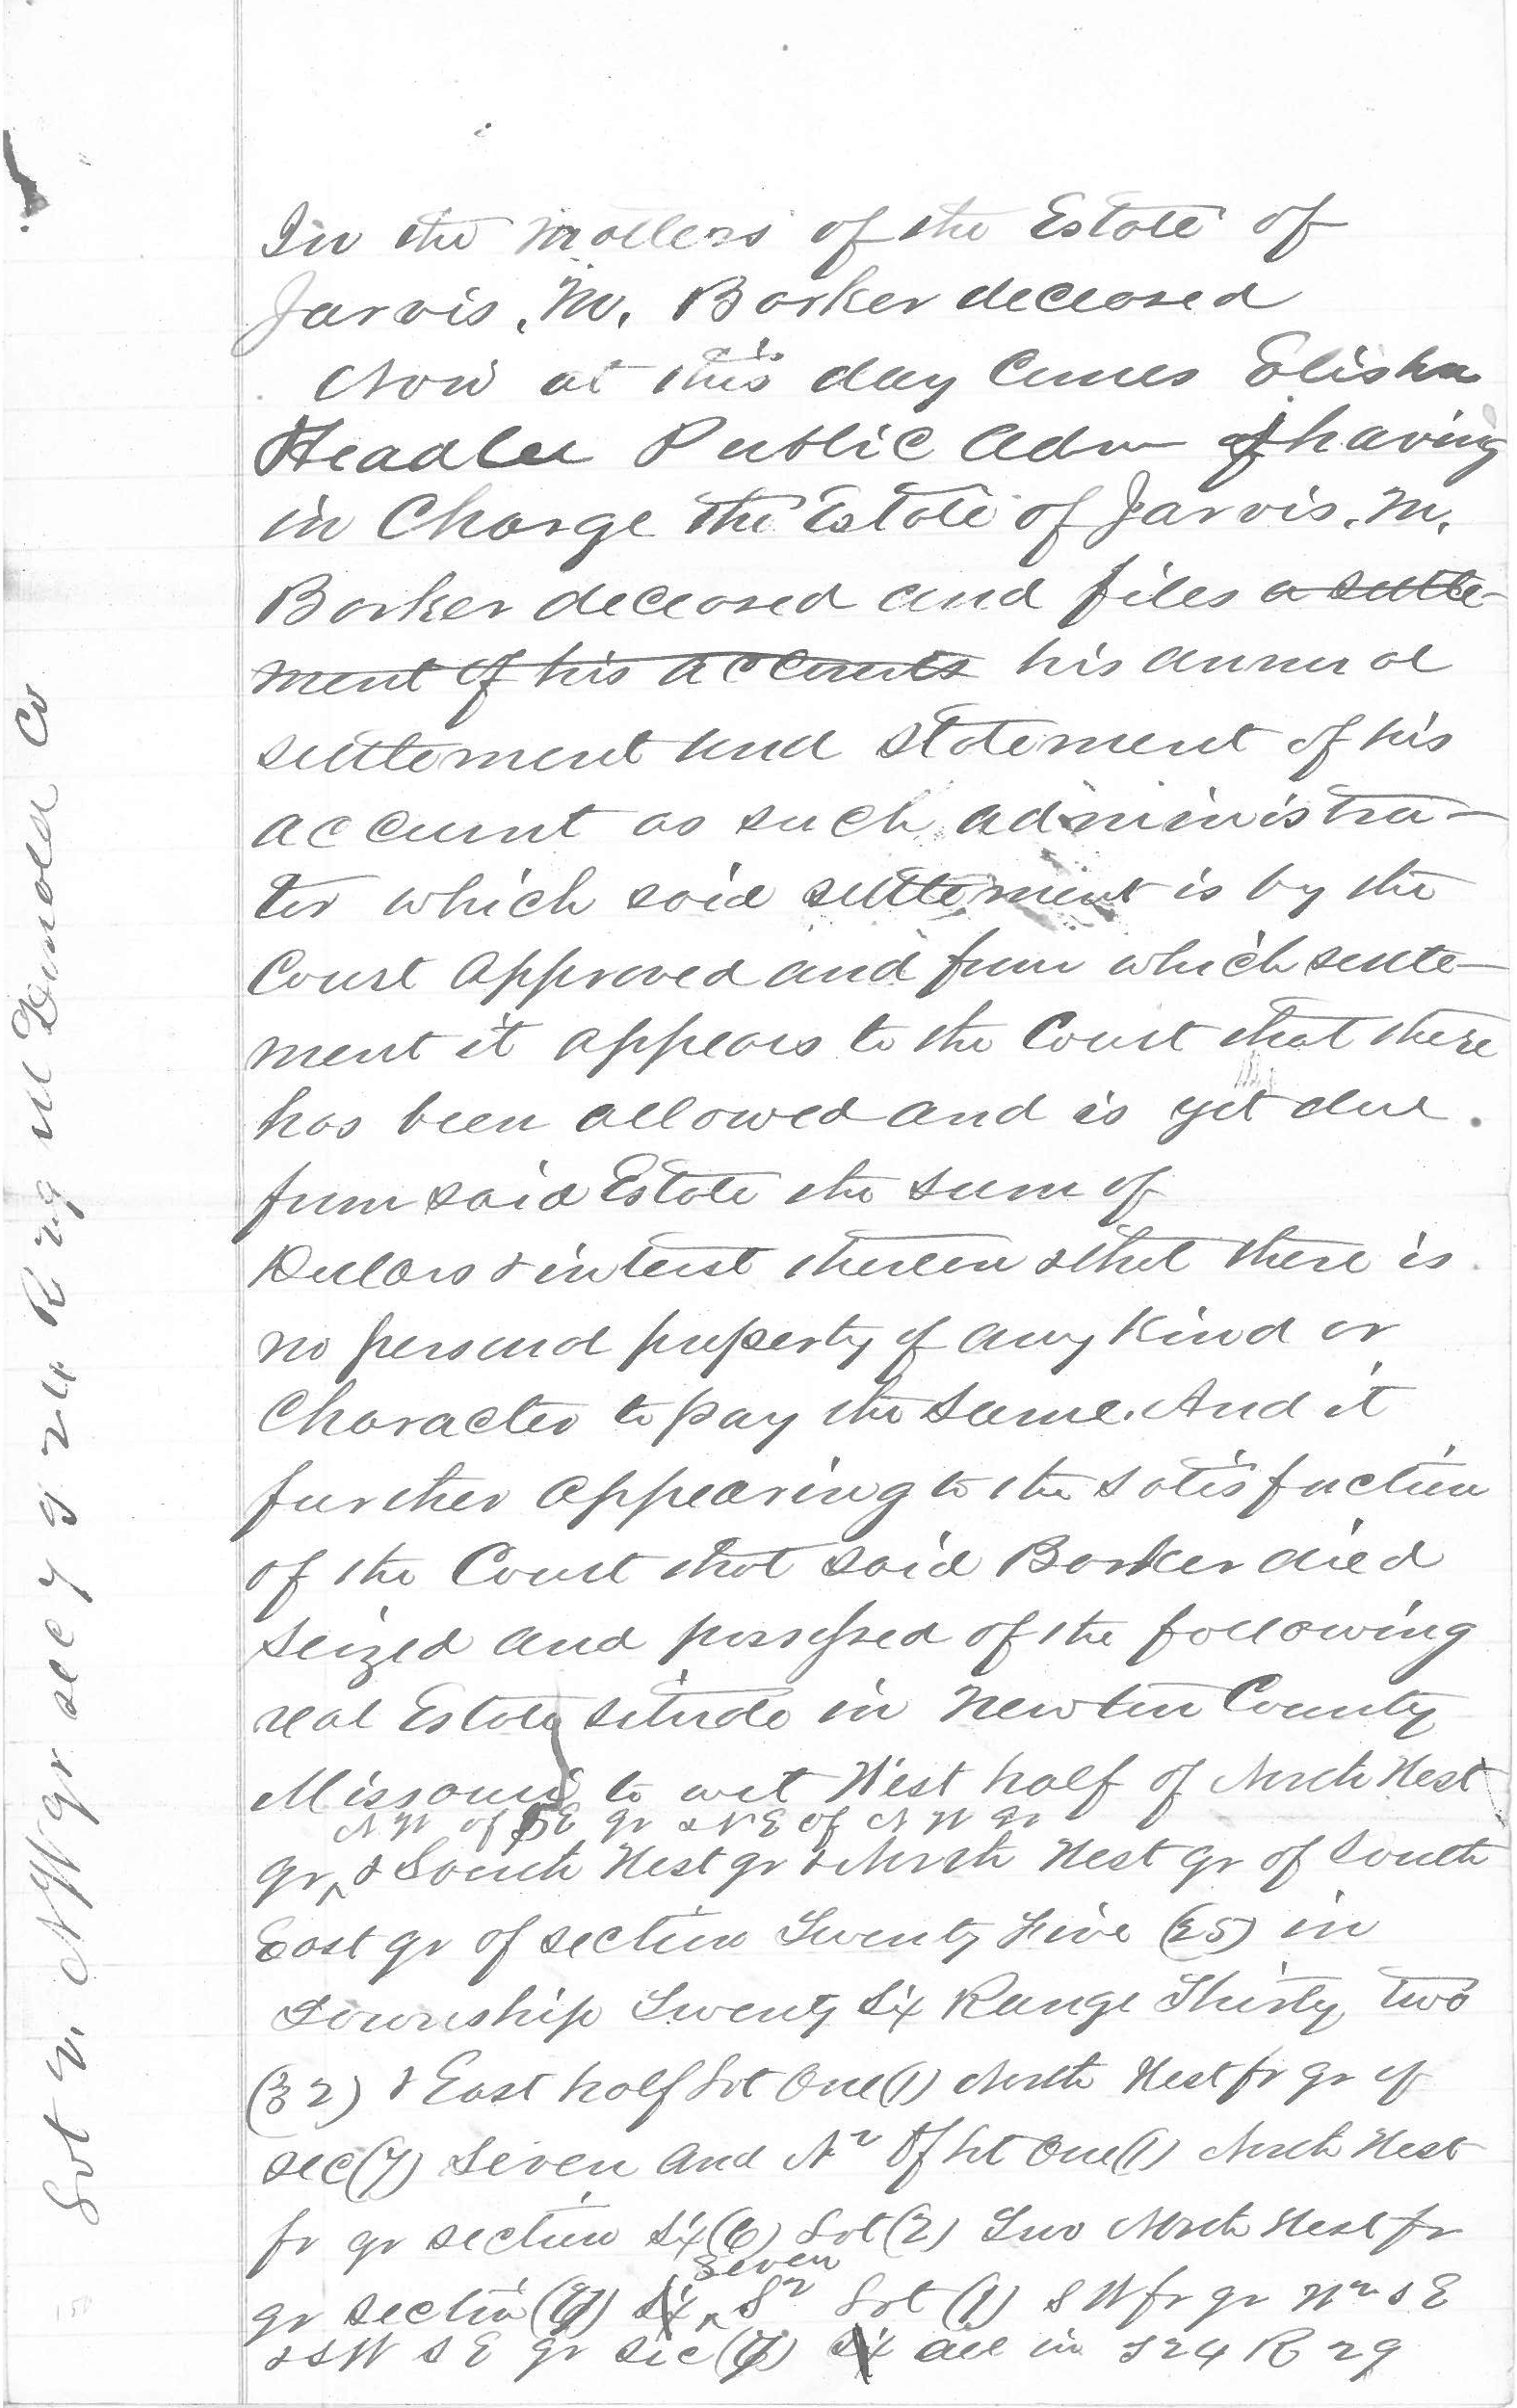 In the matters of the Estate of
Jarvis. M. Barker deceased
Now at this day Comes Elisha
Headlee Public Adm of having
in Charge the Estate of Jarvis. M.
Barker deceased and files a settle-
ment of his accounts his annual
settlement and statement of his
account as such administra-
tor which said settlement is by the
Court approved and from which settle-
ment it appears to the Court that there
has been allowed and is yet due.
from said Estate the sum of
Dollars & interest thereon & that there is
no personal property of any Kind or
Character to pay the same. And it
further appearing to the satisfaction
of the Court that said Barker died
seized and possessed of the following
real Estate situate in Newton County
Missouri to wit West half of North West
N W of SE qr & NE of N W qr
qr ^ & South West qr & North West qr of South
East qr of section Twenty Five (25) in
Township Twenty Six Range Thirty two
(32) & East half Lot One (1) North West fr qr of
sec (7) Seven and N 2 of Lot One (1) North West
fr qr section Six (6) Lot (2) Two North West fr
Seven
qr section (7) Six ^ S 2 Lot (1) S W fr qr W 2 S E
& SW S E qr Sec (7) Six all in T 24 R 29
Lot 2. N W qr sec 7 T 24 R 29 McDonald Co